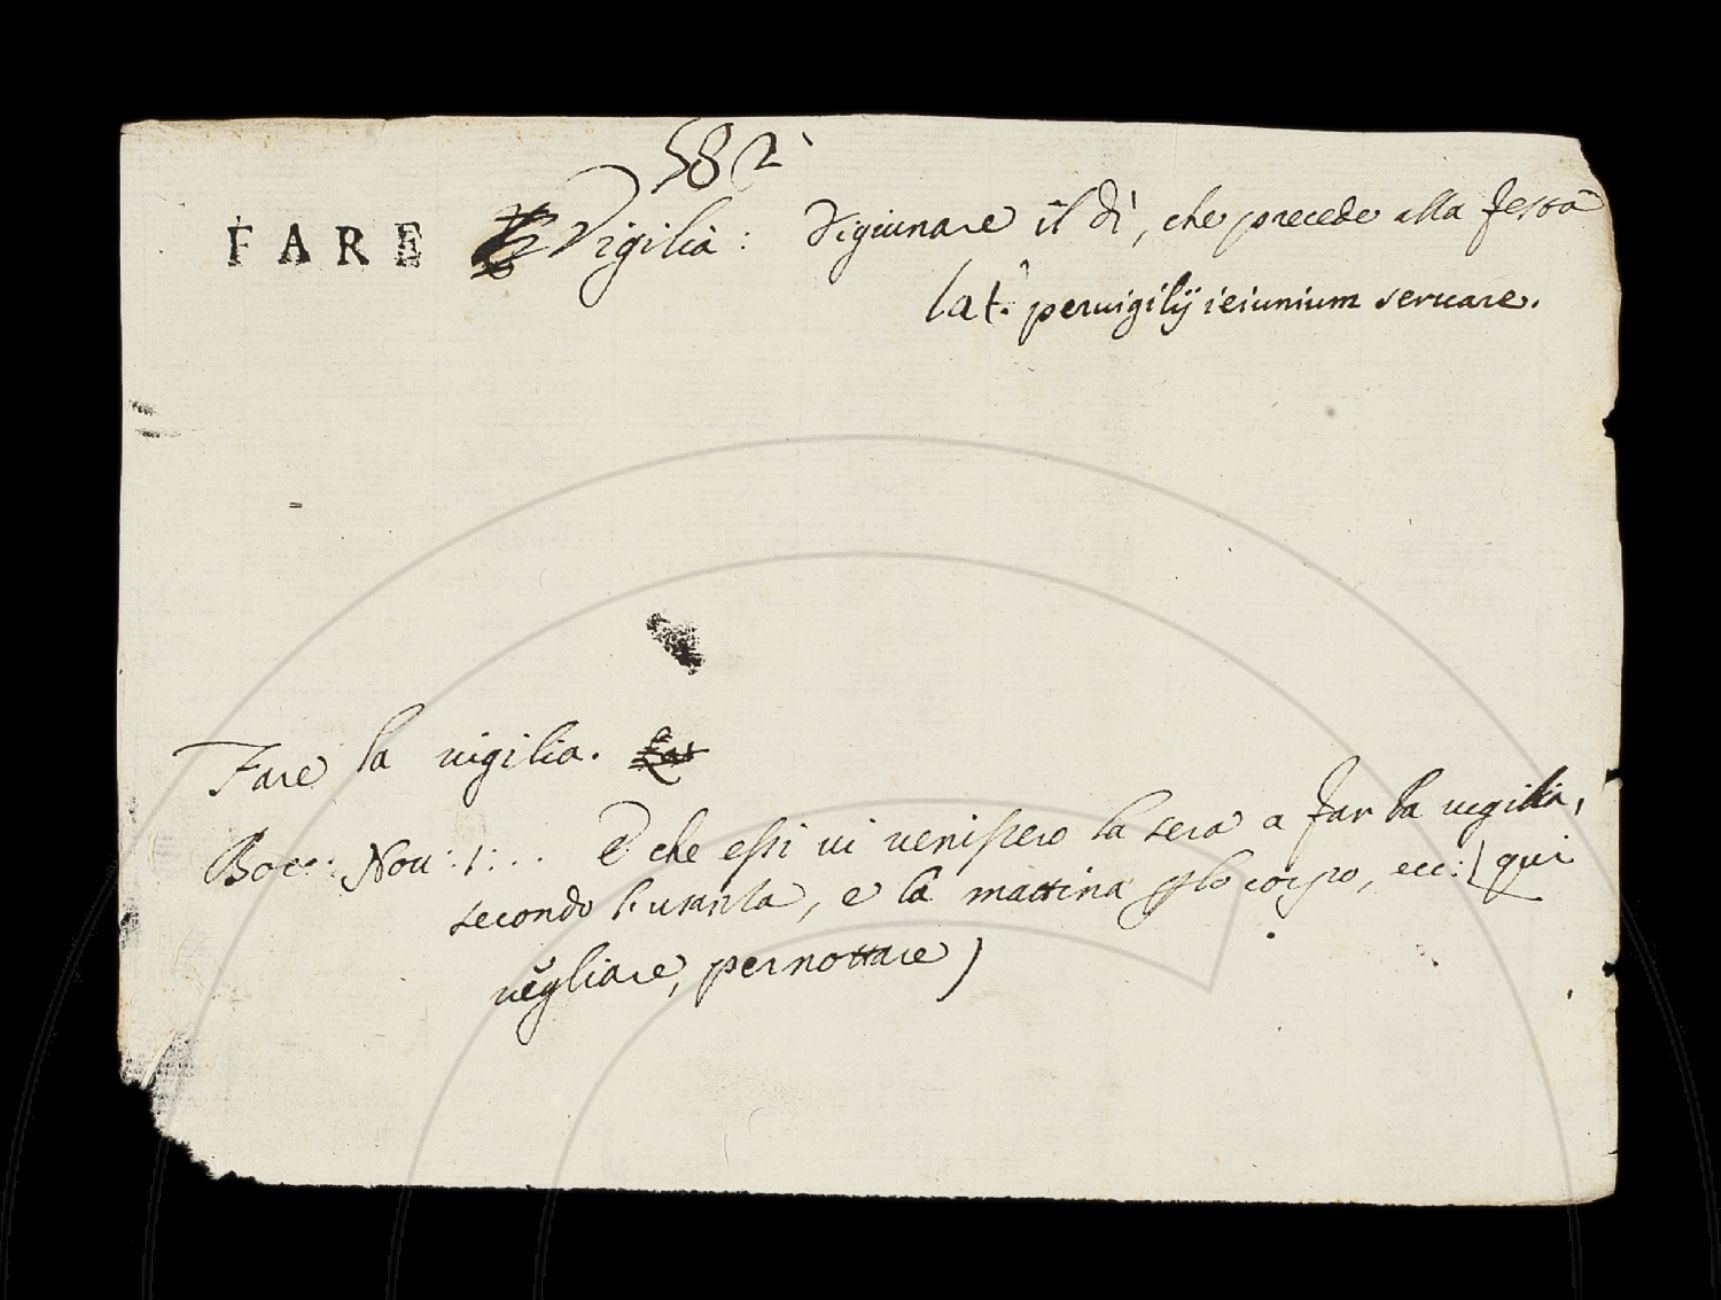 582
FARE Vigilia: Digiunare il dì, che precede alla festa
lat. peruigilij ieiunium seruare.
Fare la uigilia.
Bocc: Nou: 1: .. E che essi ui uenissero la sera a far la uigilia,
secondo l'usanza, e la mattina plo corpo, ecc: (qui
uegliare, pernottare)